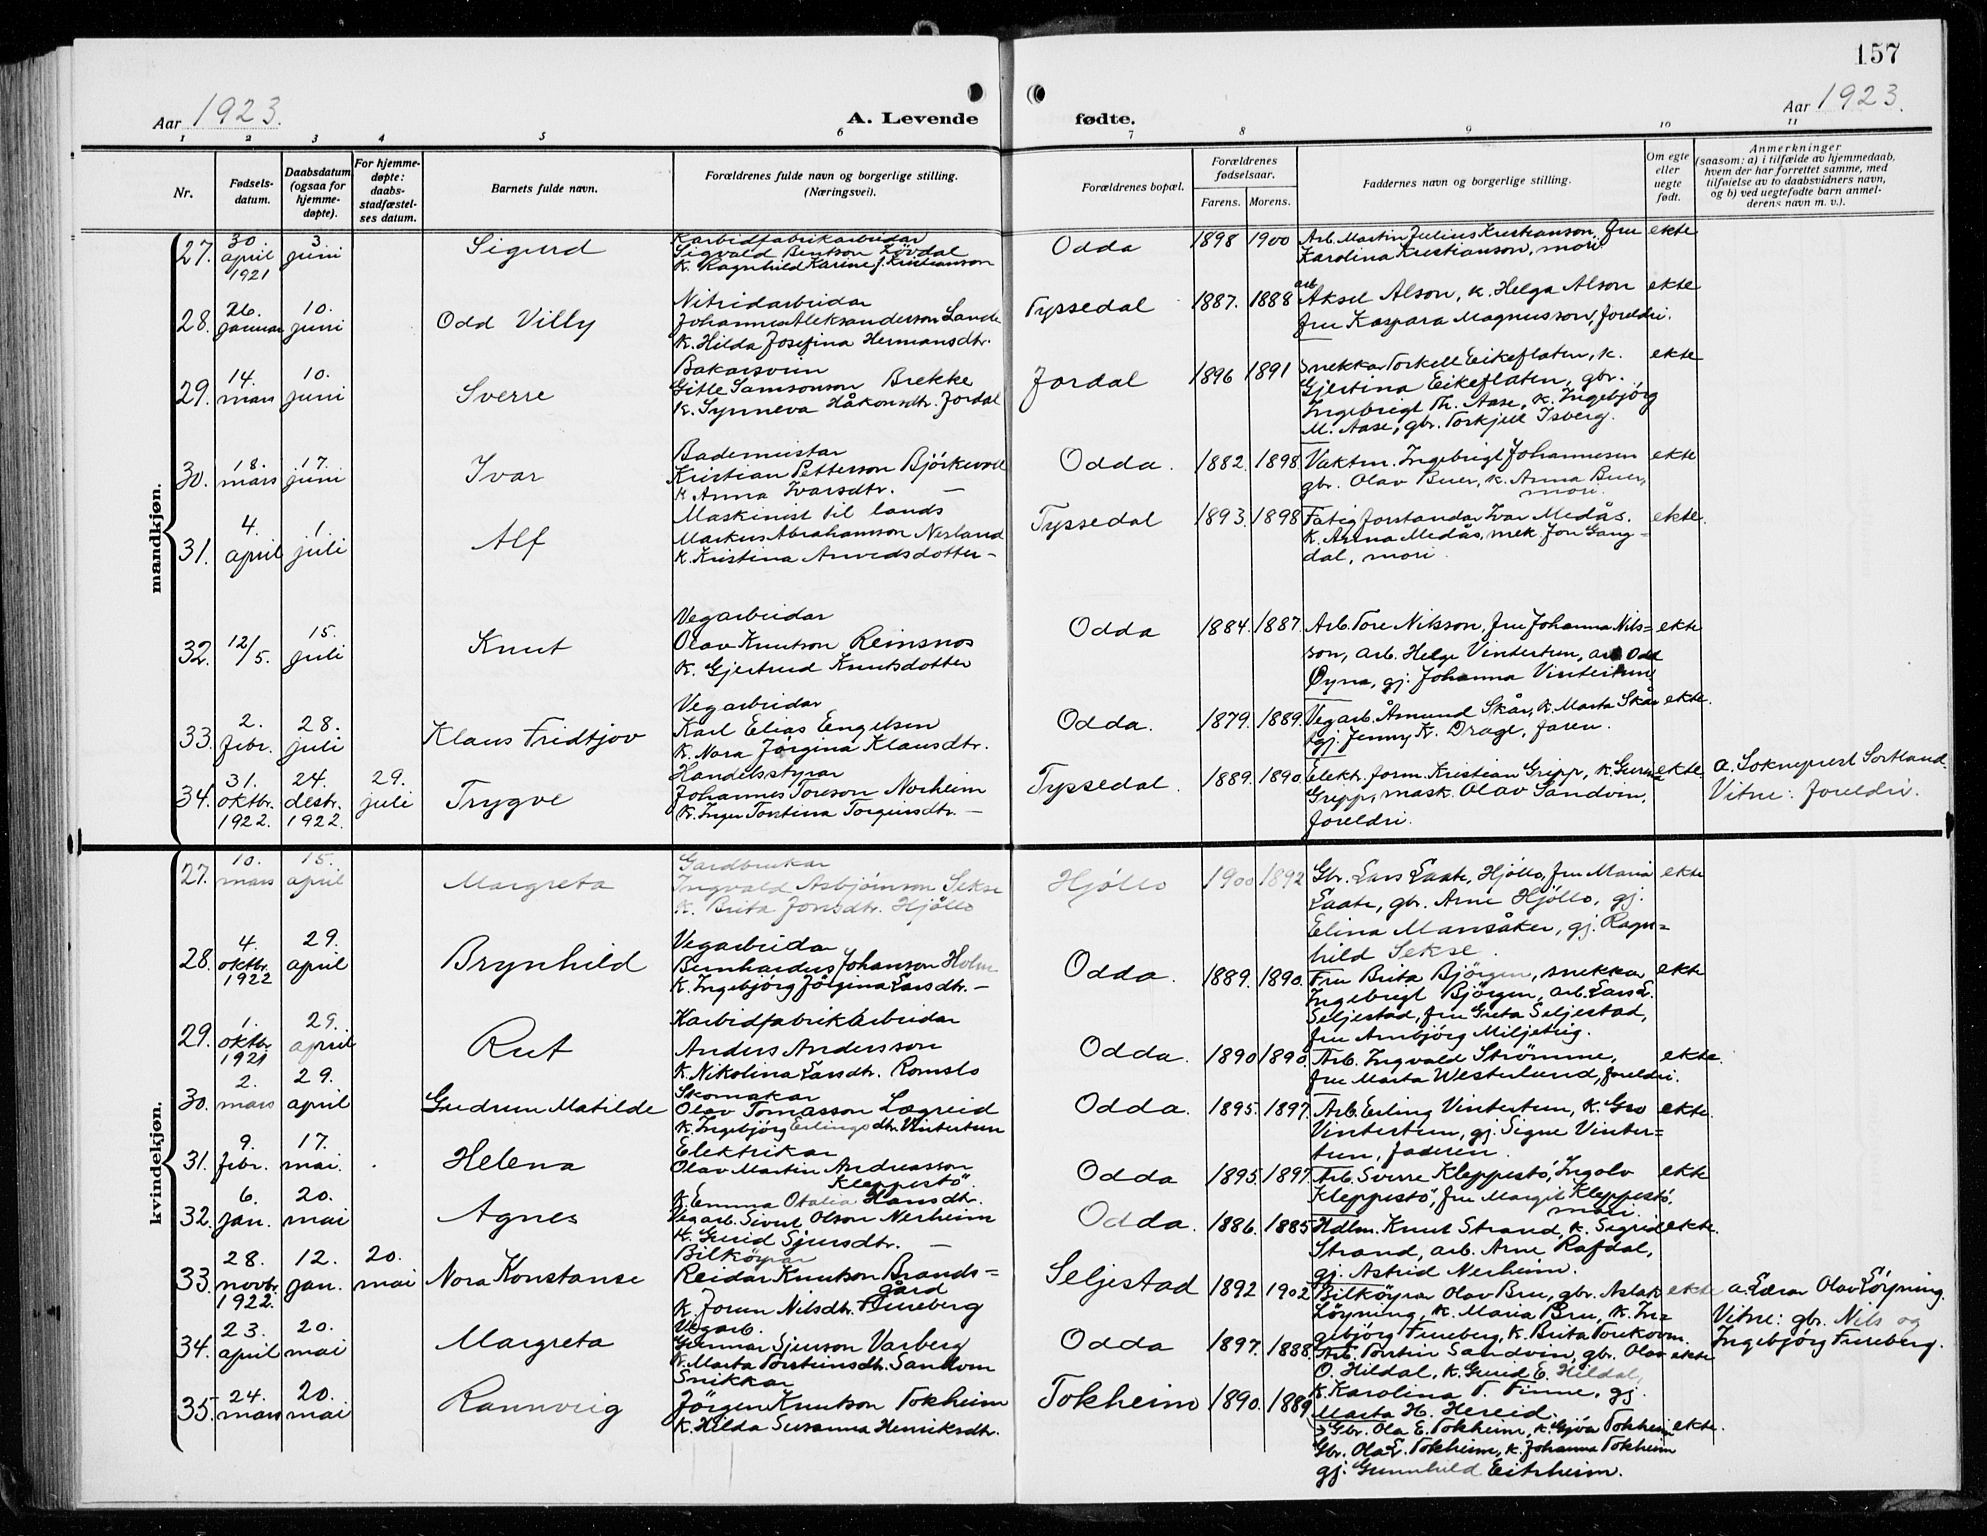 157
Aar 1923.
A. Levende
fødte.
Aar 1923.
1 2 3 4 5 6 7 8 9 10 11
Nr.
Fødsels-
datum.
Daabsdatum
(ogsaa for
hjemme-
døpte).
For hjemme-
døpte:
daabs-
stadfæstel-
ses datum.
Barnets fulde navn.
Forældrenes fulde navn og borgerlige stilling.
(Næringsvei).
Forældrenes bopæl.
Forældrenes
fødselsaar.
Farens. Morens.
Faddernes navn og borgerlige stilling.
Om egte
eller
uegte
født.
Anmerkninger
(saasom: a) i tilfælde av hjemmedaab,
hvem der har forrettet samme, med
tilføielse av to daabsvidners navn,
og b) ved uegtefødte barn anmel-
derens navn m. v.).
mandkjøn.
27. 30 april 1921
3 juni
Sigurd
Karbidfabrikarbeidar
Sigvald Bentson Lövdal
K. Ragnhild Karine f. Kristianson
Odda
1898 1900
Arb. Martin Julius Kristianson, fru
Karolina Kristianson, mori
ekte
28. 26. januar
10. juni
Odd Villy
Nitridarbeidar
Johannes Aleksanderson Lande
K. Hilda Josefina Hermansdtr.
Tyssedal
1887. 1888
arb. Aksel Alson, K. Helga Alson
fru Kaspara Magnusson, foreldri.
ekte
29. 14. mars
10. juni
Sverre
Bakarsvein
Gitle Samsonson Brekke
K. Synneva Håkonsdtr. Jordal
Jordal
1896 1891
Snekkar Torkell Eikeflaten, K.
Gjertina Eikeflaten, gbr.
Ingebrigt Th. Aase, K. Ingebjørg
M. Aase, gbr. Torkjell Isberg.
ekte
30. 18. mars
17. juni
Ivar
Bademeistar
Kristian Petterson Björkevoll
K Anna Ivarsdtr. —
Odda.
1882. 1898.
Vaktm. Ingebrigt Johannesen
gbr. Olav Buer, K. Anna Buer,
mori.
ekte
31. 4. april
1. juli
Alf
Maskinist til lands
Markus Abrahamson Nerland
K. Kristina Arnedsdotter —
Tyssedal
1893. 1898
Fatigforstandar Ivar Medås.
K. Anna Medås, mek. Jon Gang-
dal, mori.
ekte.
32. 12/5.
15. juli
Knut
Vegarbeidar
Olav Knutson Reinsnos
K. Gjertrud Knutsdotter
Odda
1884. 1887.
Arb. Tore Nilsson, fru Johanna Nils=
son, arb. Helge Vintertun, arb. Odd
Øyna, gj. Johanna Vintertun
ekte
33. 2. febr.
28. juli
Klaus Fridtjov
Vegarbeidar
Karl Elias Engelsen
K. Nora Jørgina Klausdtr.
Odda.
1879. 1889.
Vegarb. Åmund Skår, K. Marta Skår
gj. Jenny K. Drage, faren.
ekte.
34. 31. oktbr. 1922.
24. destr. 1922.
29. juli
Trygve
Handelsstyrar
Johannes Toreson Norheim
K. Inger Torstina Torgeirsdtr. —
Tyssedal.
1889. 1890
Elektr. form. Kristian Gripp, K. Gurine
Gripp, mask. Olav Sandven,
foreldri.
ekte
a. Sokneprest Sortland.
Vitne: foreldri.
kvindekjøn.
27. 10. mars
15. april
Margreta
Gardbrukar
Ingvald Asbjørnson Sekse
K. Brita Jonsdtr. Hjøllo
Hjøllo
1900 1892
Gbr. Lars Laate, Hjøllo, fru Maria
Laate, gbr. Arne Hjøllo, gj.
Elina Mansåker, gj. Ragn=
hild Sekse.
ekte
28. 4. oktbr. 1922
29. april
Brynhild
Vegarbeidar
Bernhardus Johanson Holm
K. Ingebjörg Jörgina Larsdtr. —
Odda.
1889. 1890.
Fru Brita Bjørgen, snekkar
Ingebrigt Bjørgen, arb. Lars L.
Seljestad, fru Greta Seljestad,
fru Arnbjørg Miljeteig.
ekte
29. 1. oktbr 1921
29. april
Rut
Karbidfabrikarbeidar
Anders Andersson
K. Nikolina Larsdtr. Romslo
Odda.
1890 1890.
Arb. Ingvald Strømme,
fru Marta Westerlund, foreldri.
ekte.
30. 2. mars
29. april
Gudrun Matilde
Skomakar
Olav Tomasson Lægreid
K. Ingebjörg Erlingsdtr. Vintertun
Odda.
1895. 1897.
Arb. Erling Vintertun, K. Gro
Vintertun, gj. Signe Vinter=
tun, faderen.
ekte.
31. 9. febr.
17. mai.
Helena
Elektrikar
Olav Martin Andreasson
Kleppestö.
K. Emma Otalia Hansdtr.
Odda
1895. 1897.
Arb. Sverre Kleppestö, Ingolv
Kleppestö, fru Margit Kleppestö,
mori.
ekte
32. 6. jan.
20. mai
Agnes
Vegarb. Sivert Olson Nerheim
K. Gurid Sjursdtr. —
Odda.
1886. 1885
Hdlm. Knut Strand, K. Sigrid
Strand, arb. Arne Rafdal,
gj. Astrid Nerheim.
ekte.
33. 28. novbr. 1922.
12. jan.
20. mai
Nora Konstanse
Bilköyrar
Reidar Knutson Brands=
gård
K. Jorun Nilsdtr. Fureberg
Seljestad
1892 1902
Bilköyrar Olav Bru, gbr. Aslak
Löyning, K. Maria Bru, K. In-
gebjörg Fureberg, K. Brita Torekoven.
ekte
a. Lærar Olav Löyning.
Vitne: gbr. Nils og
Ingebjörg Fureberg.
34. 23. april
20. mai
Margreta
Vegarb.
Gunnar Sjurson Varberg
K. Marta Torsteinsdtr. Sandven
Odda
1897. 1888.
Arb. Torstein Sandvin, gbr. Olav
O. Hildal, K. Gurid E. Hildal,
K. Karolina T. Finne, gj.
Marta H. Hereid.
ekte
35. 24. mars
20. mai
Rannveig
Snikkar
Jörgen Knutson Tokheim
K. Hilda Susanna Henriksdtr.
Tokheim
1890. 1889
Gbr. Ola E. Tokheim, K. Gjöa Tokheim
Gbr. Ola L. Tokheim, K. Johanna Tokheim
gj. Gunnhild Eitrheim.
ekte.